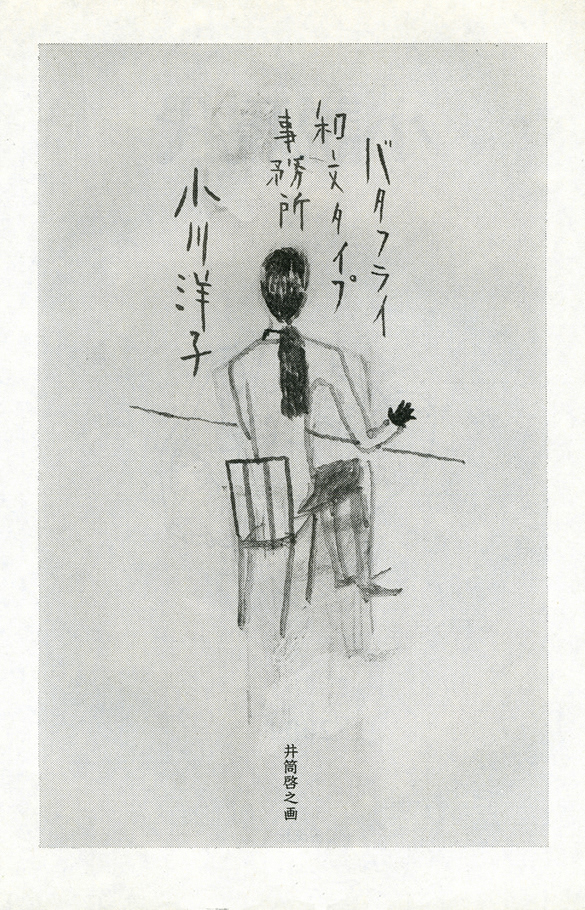 バタフライ
和文タイプ
事務所
小川洋子
井筒啓之画